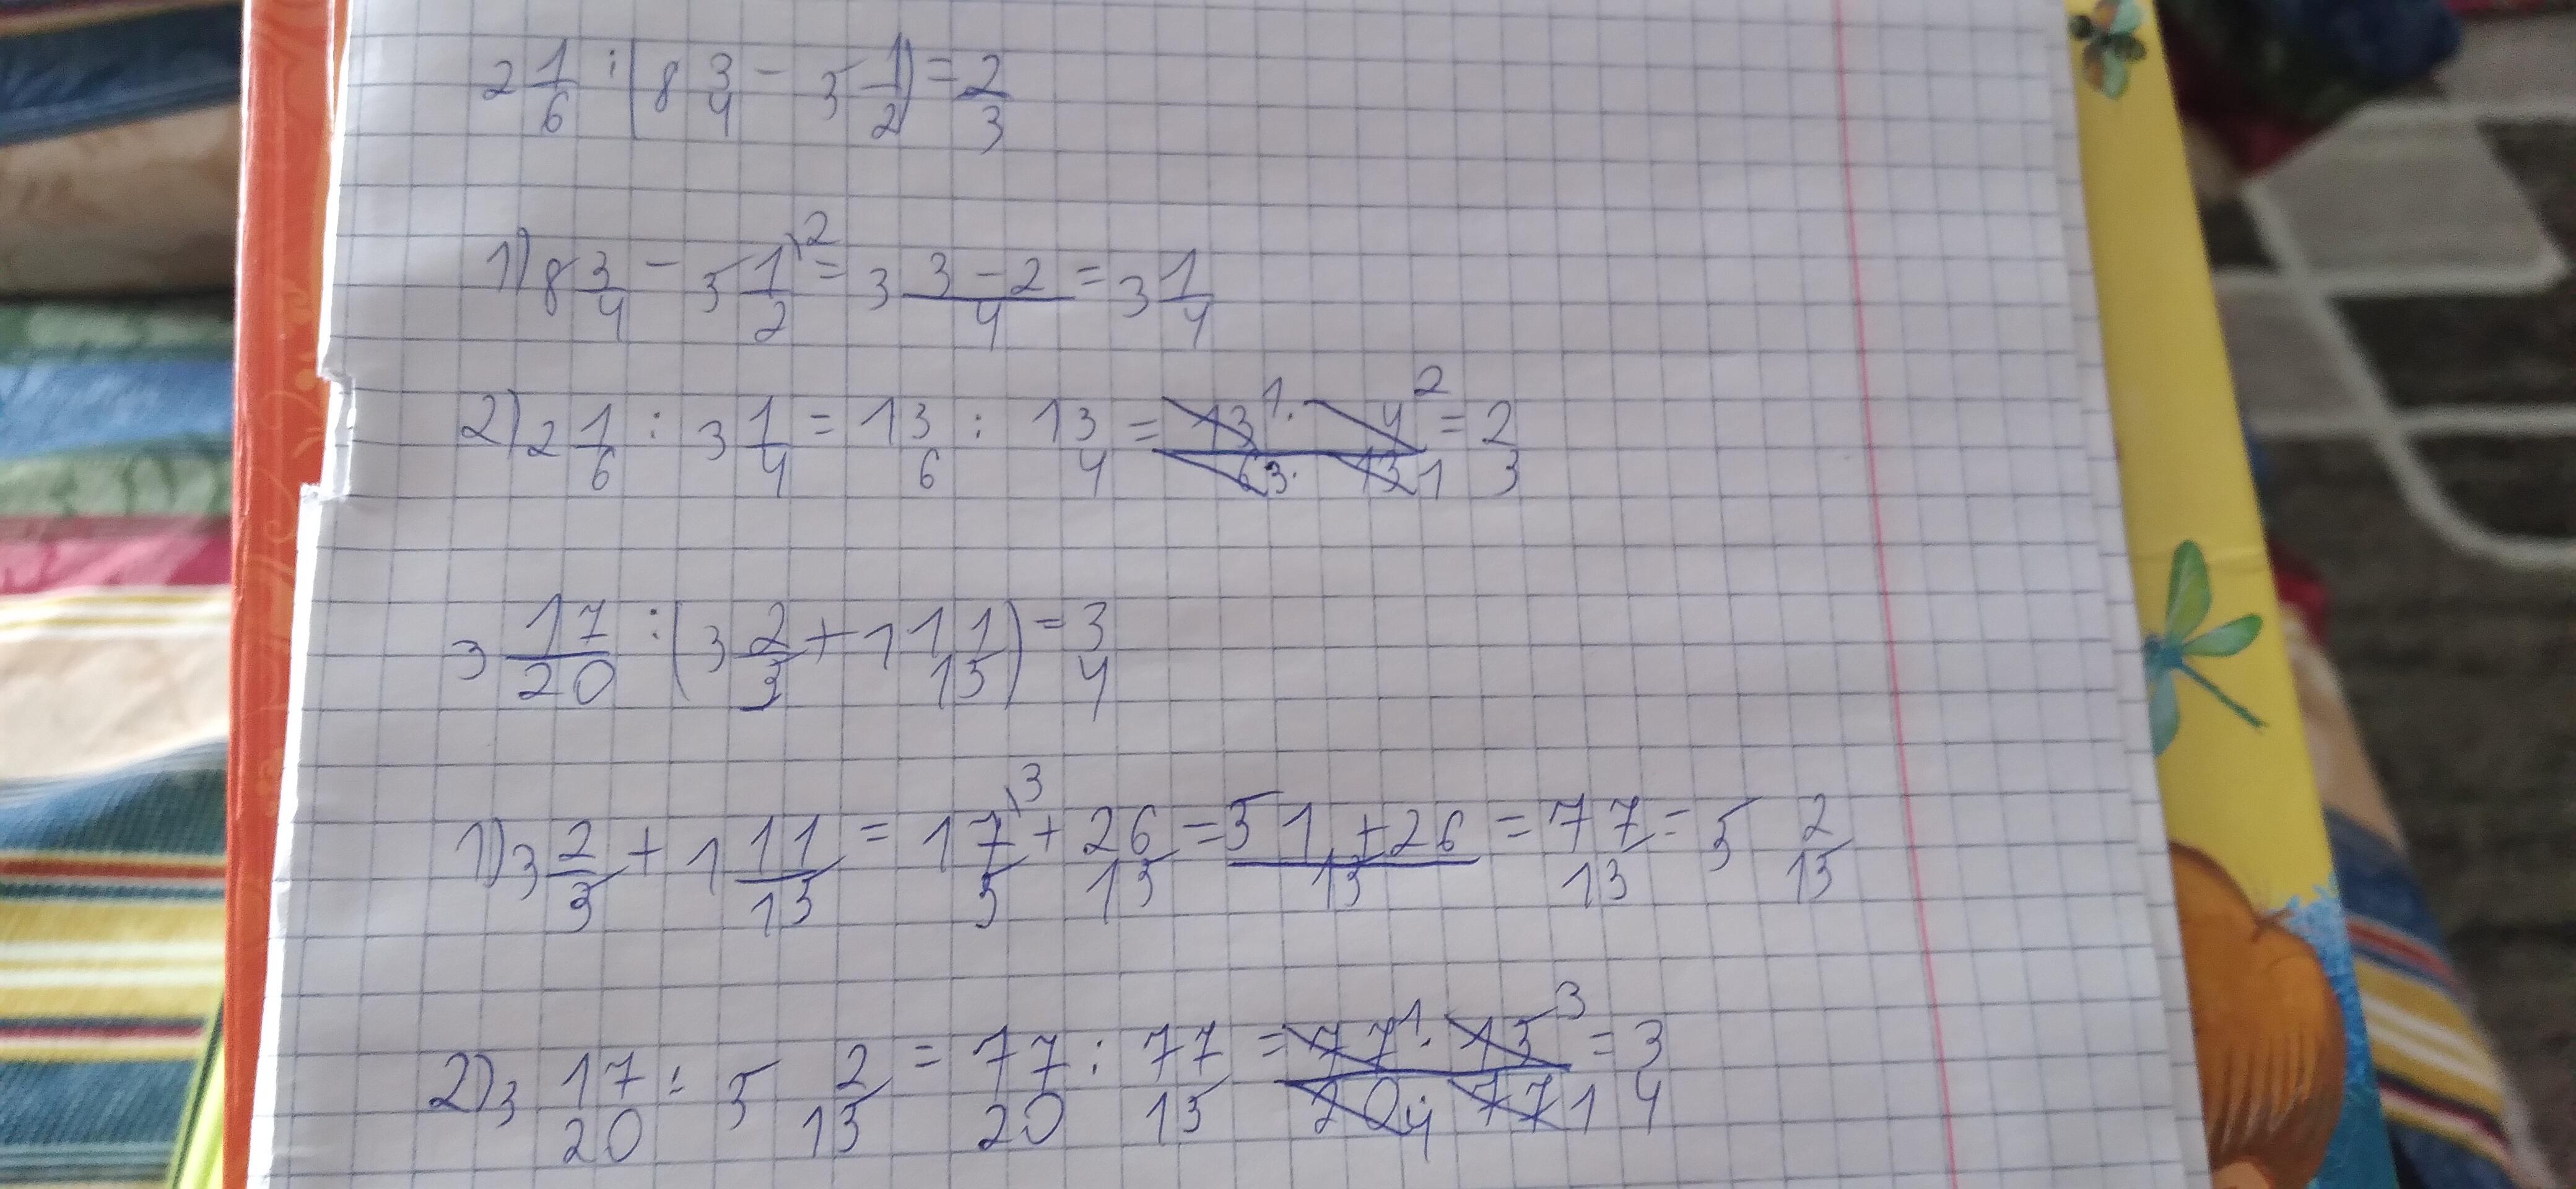 2 1/6 : (8 3/4 - 5 1/2) = 2/3
1) 8 3/4 - 5 1/2 \2 = 3 (3 - 2)/4 = 3 1/4
2) 2 1/6 : 3 1/4 = 13/6 : 13/4 = (13 1 · 4 2)/(6 3 · 13 1) = 2/3
3 17/20 : (3 2/5 + 1 11/15) = 3/4
1) 3 2/5 + 1 11/15 = 17/5 \3 + 26/15 = (51 + 26)/15 = 77/15 = 5 2/15
2) 3 17/20 : 5 2/15 = 77/20 : 77/15 = (77 1 · 15 3)/(20 4 · 77 1) = 3/4